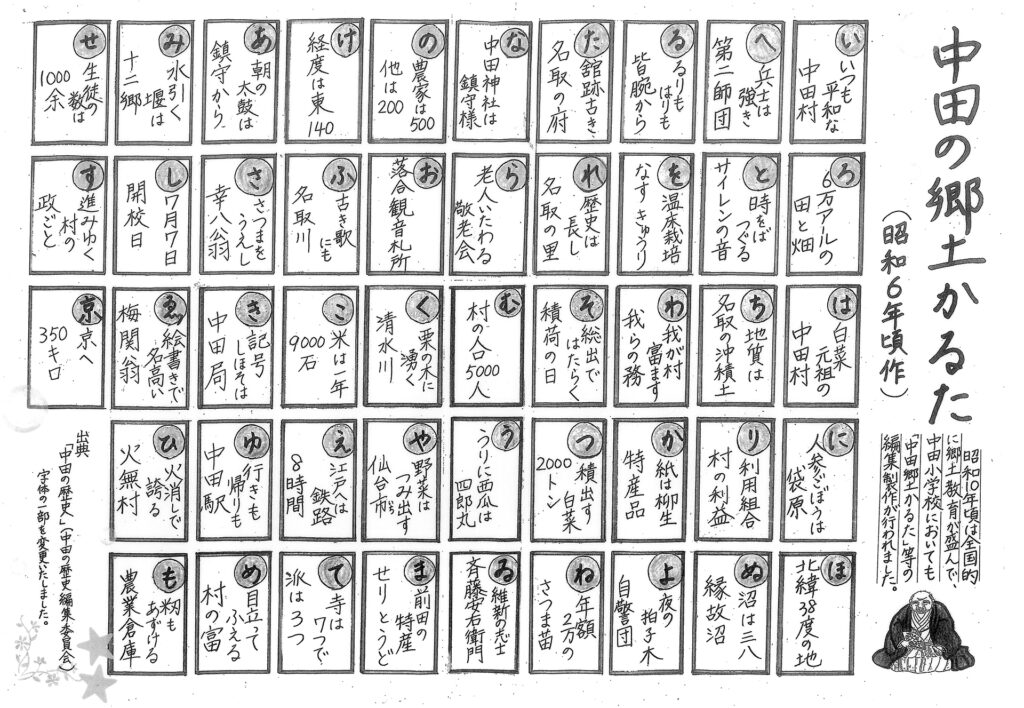 中田の郷土かるた
(昭和6年頃作)
昭和10年頃は全国的
に郷土教育が盛んで、
中田小学校においても
「中田郷土かるた」等の
編集製作が行われました。
い
いつも
平和な
中田村
ろ
6万アールの
田と畑
は
白菜
元祖の
中田村
に
人参ごぼうは
袋原
ほ
北緯38度の地
へ
兵士は
強き
第二師団
と
時をば
つぐる
サイレンの音
ち
地質は
名取の沖積土
り
利用組合
村の利益
ぬ
沼は三八
縁故沼
る
るりも
はりも
皆腕から
を
温床栽培
なすきゅうり
わ
我が村
富ます
我らの務
か
紙は柳生
特産品
よ
夜の
拍子木
自警団
た
舘跡古き
名取の府
れ
歴史は
長し
名取の里
そ
総出で
はたらく
積荷の日
つ
積出す
白菜
2000トン
ね
年額
2万の
さつま苗
な
中田神社は
鎮守様
ら
老人いたわる
敬老会
む
村の人口
5000人
う
うりに西瓜は
四郎丸
ゐ
維新の志士
斉藤安右衛門
の
農家は500
他は200
お
落合観音札所
く
栗の木に
湧く
清水川
や
野菜は
つみ出す
仙台市
ま
前田の
特産
せりとうど
け
経度は東
140
ふ
古き歌
にも
名取川
こ
米は一年
9000石
え
江戸へは
鉄路
8時間
て
寺は
7つで
派は3つ
あ
朝の
太鼓は
鎮守から
さ
さつまを
うえし
幸八公翁
き
記号
しほそは
中田局、
ゆ
行きも
帰りも
中田駅
め
目立って
ふえる
村の富
み
水引く
堰は
十二郷
し
7月7日
開校日
ゑ
絵書きで
名高い
梅関翁
ひ
火消しで
誇る
火無村
も
籾も
あずける
農業倉庫
せ
生徒の
数は
1000余
す
進みゆく
村の
政ごと
京
京へ
350キロ
出典
「中田の歴史」(中田の歴史編集委員会)
字体の一部を変更いたしました。